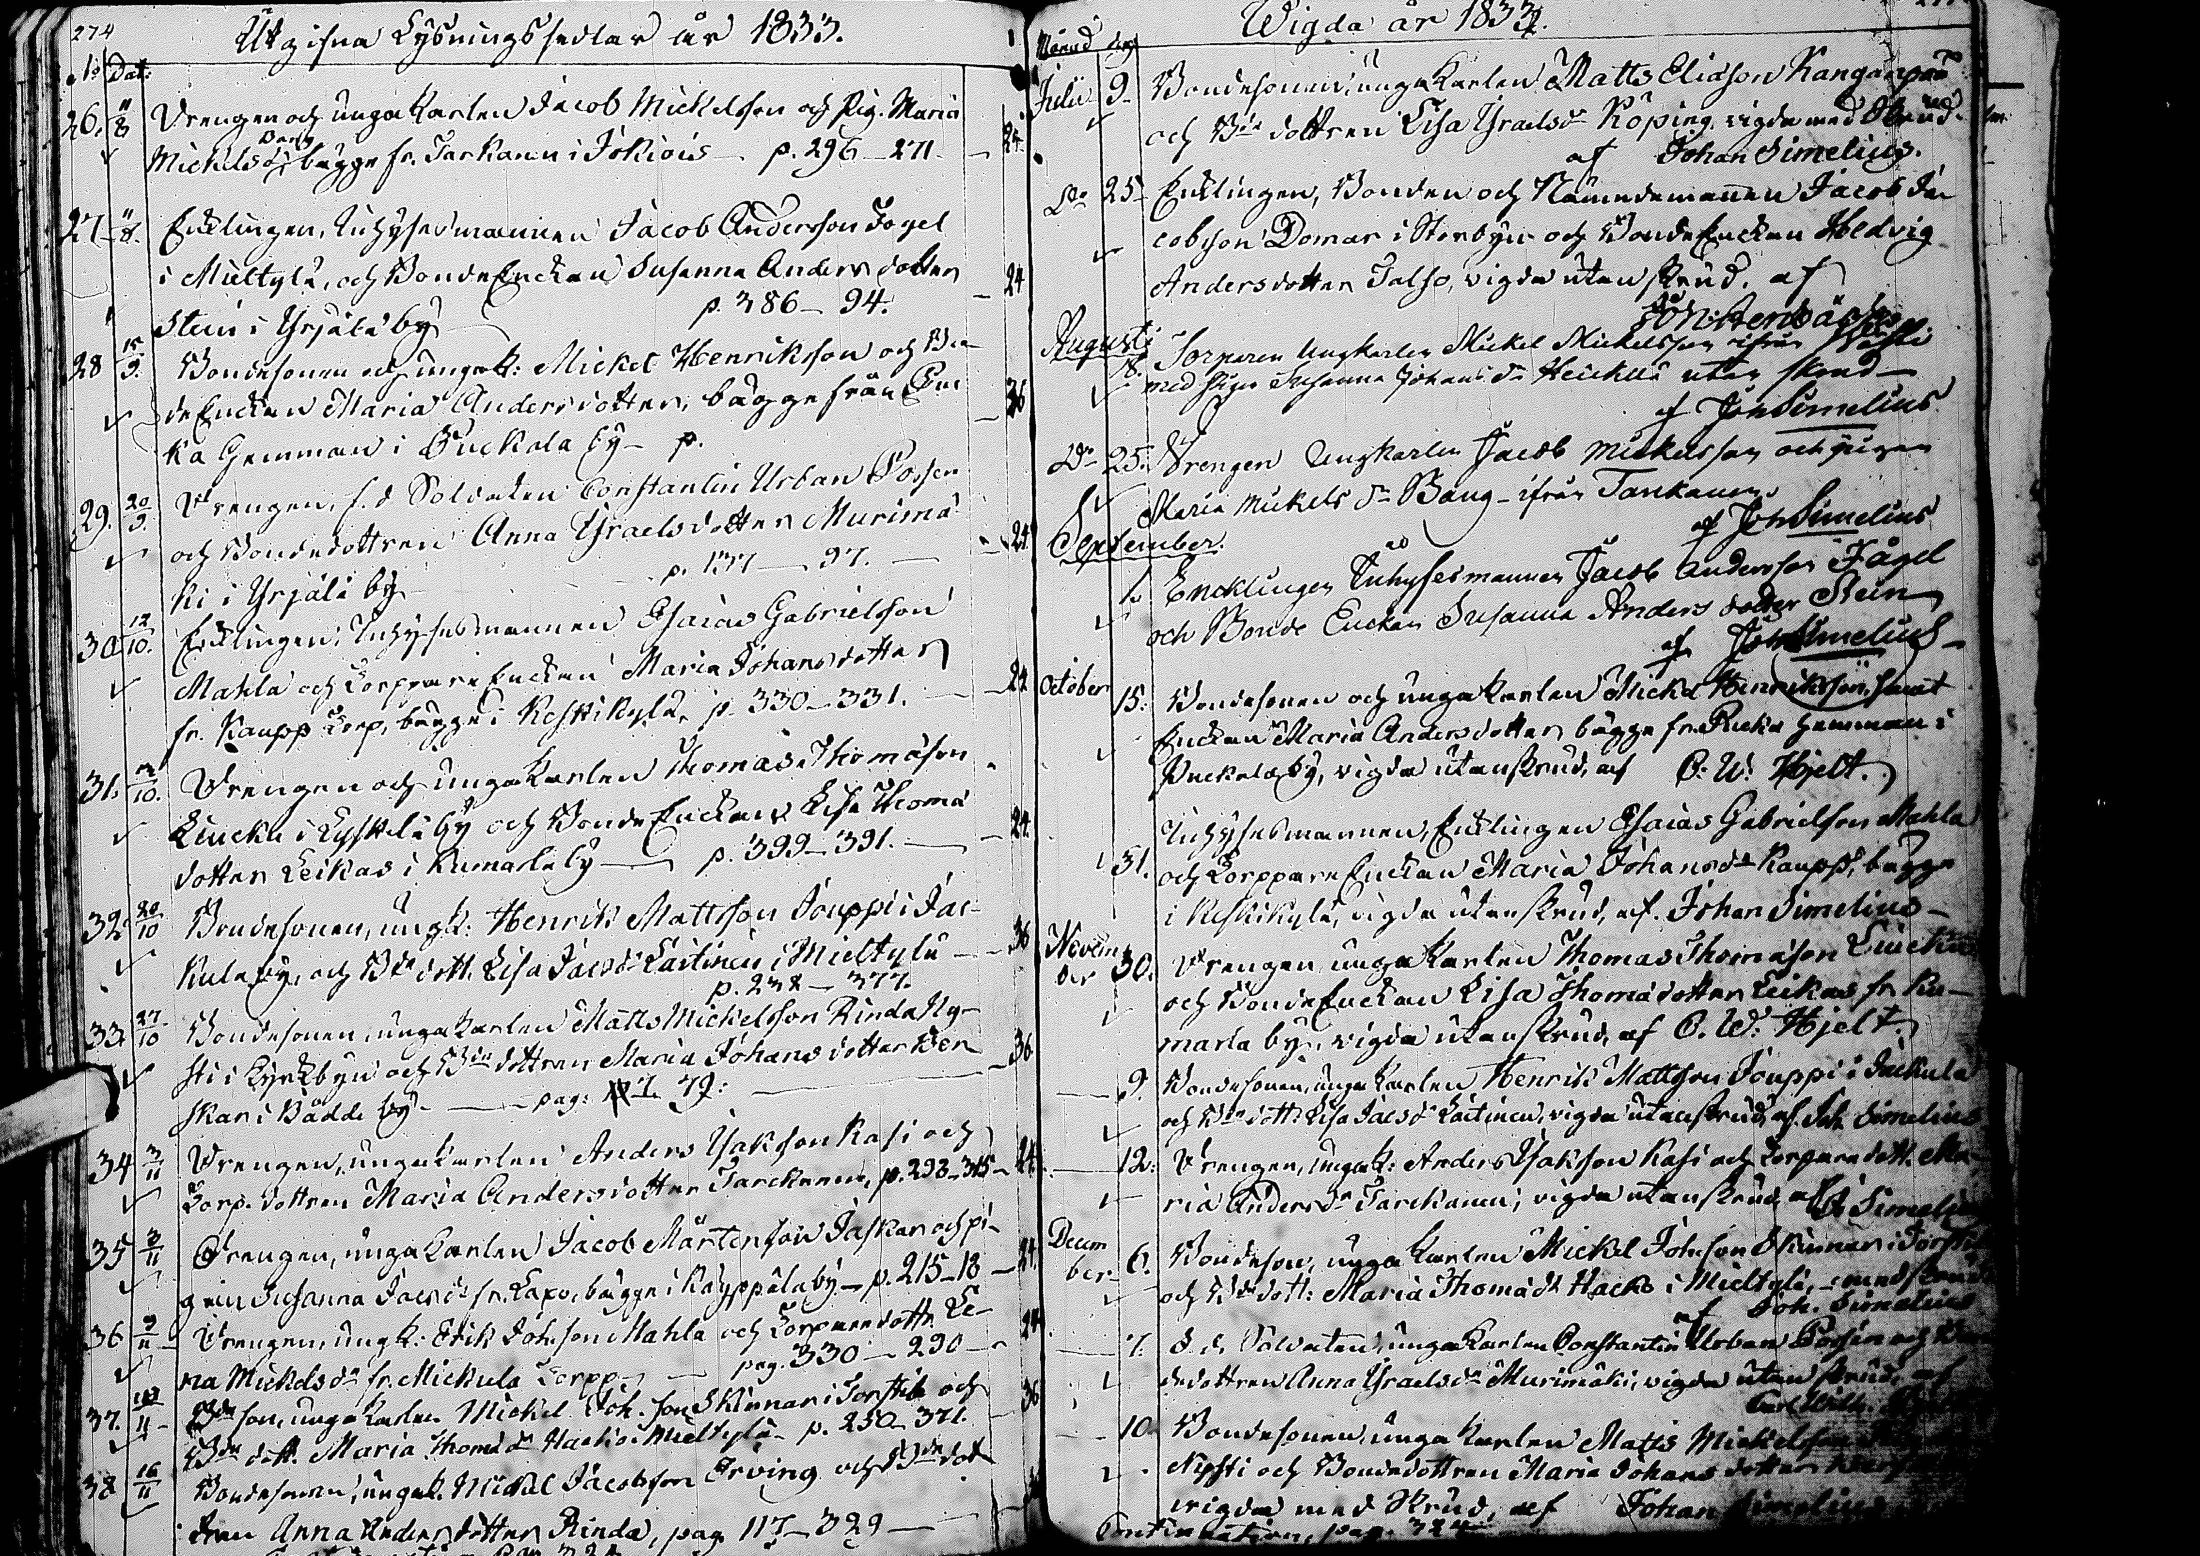 274
Utgifna Lysningssedlar år 1833.
No Dat:
26. 8 Drengen och unga Karlen Jacob Mickelsson och Pig. Maria
Bang
Mickelsdr bägge fr. Tarkanen i Jokiois p. 296 - 271 - 24.
27 8. Encklingen, Inhysesmannen Jacob Andersson Fogel
i Mieltylä, och Bonde Enckan Susanna Andersdotter 24
Stein i Yrjälä by p. 386 - 94.
28 15/9. Bondesonen och ungk: Mickel Henriksson och Bon-
de Enckan Maria Andersdotter, bägge från Puc 36
ka Hemman i Puckala by - p.
29. 20/9. Drengen, f. d Soldaten Constantin Urban Forssen
och Bondedottren Anna Israelsdotter Murimä 24
ki i Yrjälä by p. 137 - 97.
30 12/10. Encklingen, Inhysesmannen Esaias Gabrielsson
Mahla och Torppare Enckan Maria Johansdotter 24
fr. Kaupp Torp, bägge i Keskikylä, p. 330 - 331.
31. 10. Drengen och unga Karlen Thomas Thomasson
Liucku i Lysskilä by och Bonde Enckan Lisa Thoma 24.
dotter Leikas i Kumarla by p. 399 - 391.
32 20/10 Bondesonen, ungk: Henrik Mattsson Jouppi i Jac-
kula by, och Bde dott. Lisa Jacsdr Laitinen i Mieltylä - 36
p. 238 - 377.
33. 27/10 Bondesonen, unga Karlen Matts Mickelsson Rinda Ny-
sti i Kyrkbyn och Bde dottren Maria Johansdotter Wer 36
skar i Bådde by. pag: 79:
34 3/11 Drengen, unga Karlen Anders Isaksson Kasi och 24.
Torp. dottren Maria Andersdotter Tarckanen, p. 293 - 315
35 3/11 Drengen, unga Karlen Jacob Mårtensson Jaskar och pi-
gan Susanna Jacsdr fr. Kapo, bägge i Kayppälä by - p. 215 - 18 - 24.
36 9/11 Drengen, ungk: Erik Johsson Mahla och Torpare dottr Le- 24
na Mickelsdr fr. Mickula Torpp pag. 330 - 290
37. 11 Bde son, unga Karlen Mickel Joh. son Skinnar i Torstila och 36
Bde dott. Maria Thomædr Hacko i Mieltylä - p. 250 - 371.
38 16/11 Bondesonen, ungk. Mickel Jacobsson Irving och Bde dot
tren Anna Andersdotter Rinda, pag. 117 - 329
Wigda år 1833.
Månad dag
Julii 9. Bondesonen, unga Karlen Matts Eliasson Kanganpää
och Bde dottren Lisa Israelsdr Köping, vigda med Skrud.
af Johan Simelius.
Do 25 Encklingen, Bonden och Nämndemannen Jacob Ja
cobsson Domar i Storbyn och Bonde Enckan Hedvig
Andersdotter Talso, vigda utan skrud. af
Augusti
18. Torparen Ungkarlen Mickel Mickelsson ifrån
med pigan Susanna Johansdr Heickilä utan skrud
af Joh Simelius
Do 25. Drengen Ungkarlen Jacob Mickelsson och pigan
Maria Mickelsdr Bang - ifrån Tarkanen
af Joh Simelius
September.
1. Encklingen Inhysesmannen Jacob Andersson Fågel
och Bonde Enckan Susanna Andersdotter Stein
af Joh Simelius
October
15. Bondesonen och unga Karlen Mickel Henriksson, samt
Enckan Maria Andersdotter bägge fr. Pucka Hemman i
Puckala by, vigda utan skrud, af C. W. Hjelt.
Inhysesmannen, Encklingen Esaias Gabrielsson Mahla
31. och Torppare Enckan Maria Johansdr Kaupp, bägge
i Keskikylä, vigda utan skrud, af. Johan Simelius -
Novem
ber 30. Drengen unga Karlen Thomas Thomasson Liucku
och Bonde Enckan Lisa Thomædotter Leikas fr. Ku-
marla by, vigda utan skrud, af C. W. Hjelt.
9. Bondesonen, unga Karlen Henrik Mattsson Jouppi i Jackula
och Bde dottr Lisa Jacsdr Laitinen, vigda utan skrud, af. Joh Simelius
12: Drengen, ungk: Anders Isaksson Kasi och Torpare dott. Ma-
ria Andersdr Tarckanen, vigda utan skrud af Simelius
Decem
ber 6. Bondeson, unga Karlen Mickel Johsson Skinnar i Torstila
och Bde dott: Maria Thomædr Hacko i Mieltylä, - med skrud
af Joh. Simelius
7. f. d. Soldaten, unga Karlen Constantin Urban Forssen och Bon
dedottren Anna Israelsdr Murimäki, vigda utan skrud, af
Carl Wilh. Hjelt
10. Bondesonen, unga Karlen Matts Mickelsson
Nysti och Bondedottren Maria Johansdotter
vigda med Skrud, af Johan Simelius
Continuation, pag. 324